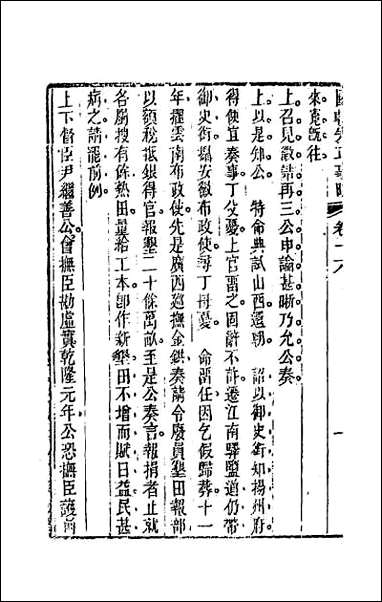 國朝先正事略 卷十六 一
來寬旣往
上召見徵詰再三公申論甚晰乃允公奏
上以是知公 特命典試山西還朝 詔以御史銜知揚州府
得便宜奏事丁父憂上官畱之固辭不許遷江南驛鹽道仍帶
御史銜擢安徽布政使尋丁母憂 命畱任因乞假歸葬十一
年擢雲南布政使先是廣西廵撫金鉷奏請令廢員墾田報部
以額稅抵銀得官報墾二十餘萬畝至是公奏言報捐者止就
各屬搜有餘熟田量給工本卽作新墾田不增而賦日益民甚
病之請罷前例
上下督臣尹繼善公會撫臣勘虛實乾隆元年公恐撫臣護前